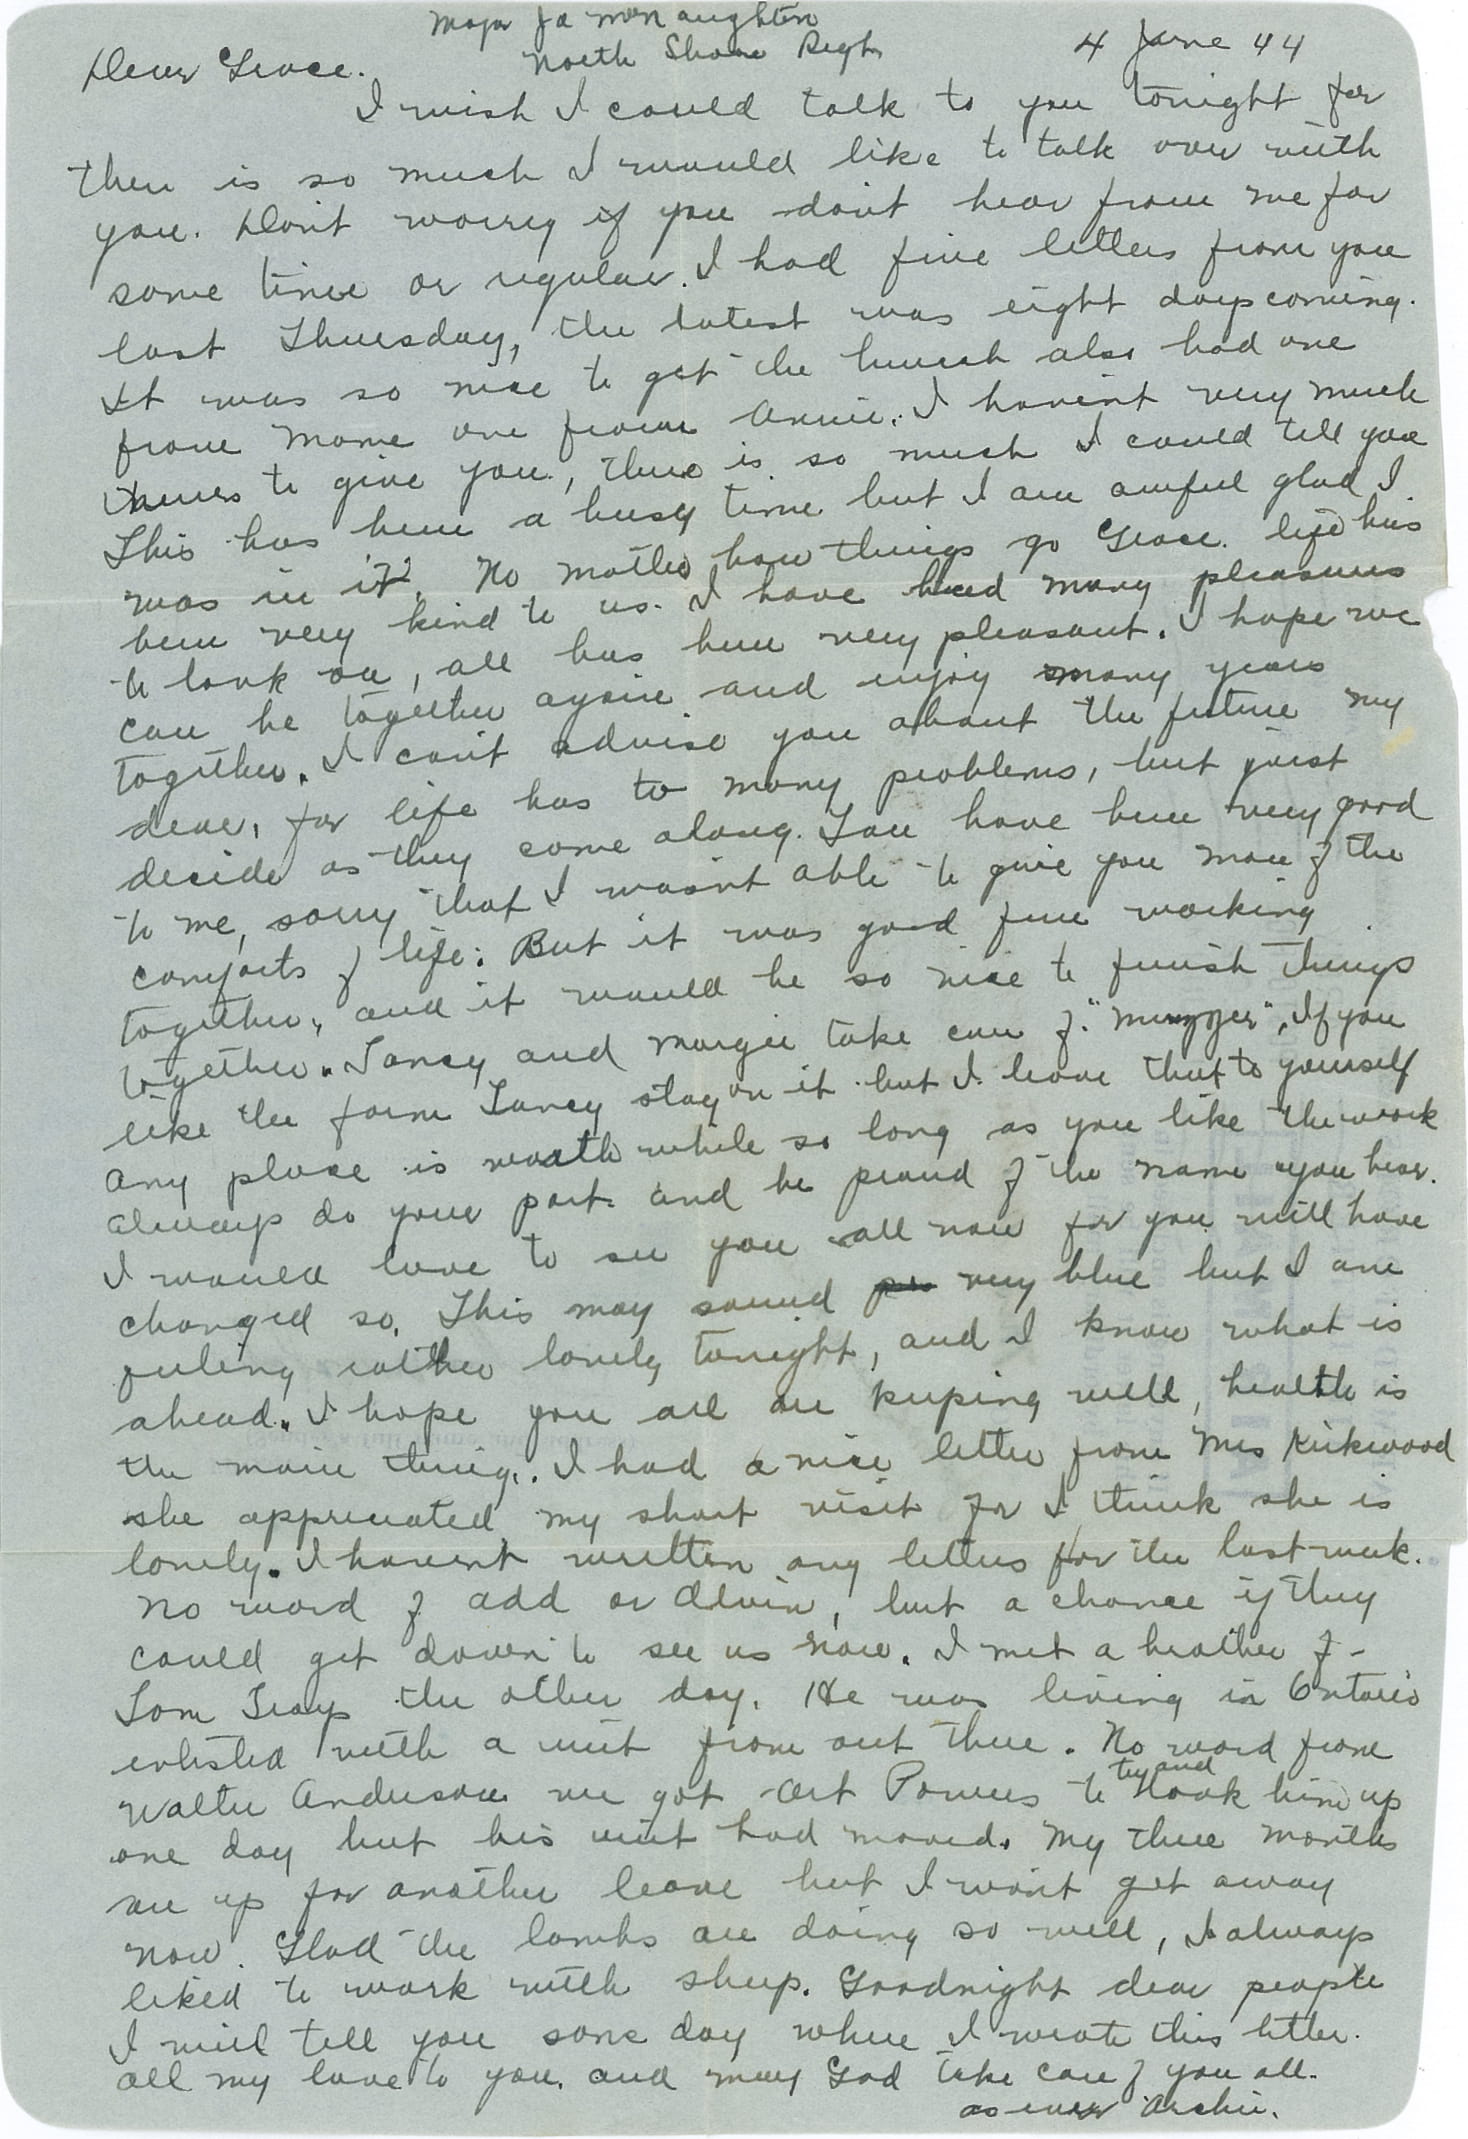 Major J A McNaughton
North Shore Regt
4 June 44
Dear Grace.
I wish I could talk to you tonight for
there is so much I would like to talk over with
you. Don't worry if you don't hear from me for
some time or regular. I had five letters from you
last Thursday, the latest was eight days coming.
It was so nice to get the bunch also had one
from Mame one from Annie. I haven't very much
news to give you, there is so much I could tell you
This has been a busy time but I am awful glad I
was in it. No matter how things go Grace. life has
been very kind to us. I have had many pleasures
to look on, all has been very pleasant. I hope we
can be together again and enjoy many years
together. I can't advise you about the future my
dear, for life has to many problems, but just
decide as they come along. You have been very good
to me, sorry that I wasn't able to give you more of the
comforts of life. But it was good fun working
together, and it would be so nice to finish things
together. Tancy and Margie take care of "Mugger", If you
like the farm Tancy stay on it but I leave that to yourself
any place is worth while so long as you like the work
always do your part and be proud of the name you bear.
I would love to see you all now for you will have
changed so. This may sound very blue but I am
feeling rather lonely tonight, and I know what is
ahead. I hope you all are keeping well, health is
the main thing. I had a nice letter from Mrs Kirkwood
she appreciated my short visit for I think she is
lonely. I havent written any letters for the last week.
No word of add or Alvin, but a chance if they
could get down to see us now. I met a brother of
Tom Trays the other day. He was living in Ontario
enlisted with a unit from out there. No word from
Walter Anderson we got Art Powers to try and hook him up
one day but his unit had moved. My three months
are up for another leave but I won't get away
now. Glad the lambs are doing so well, I always
liked to work with sheep. Goodnight dear people
I will tell you some day where I wrote this letter.
all my love to you. and may God take care of you all.
as ever Archie.